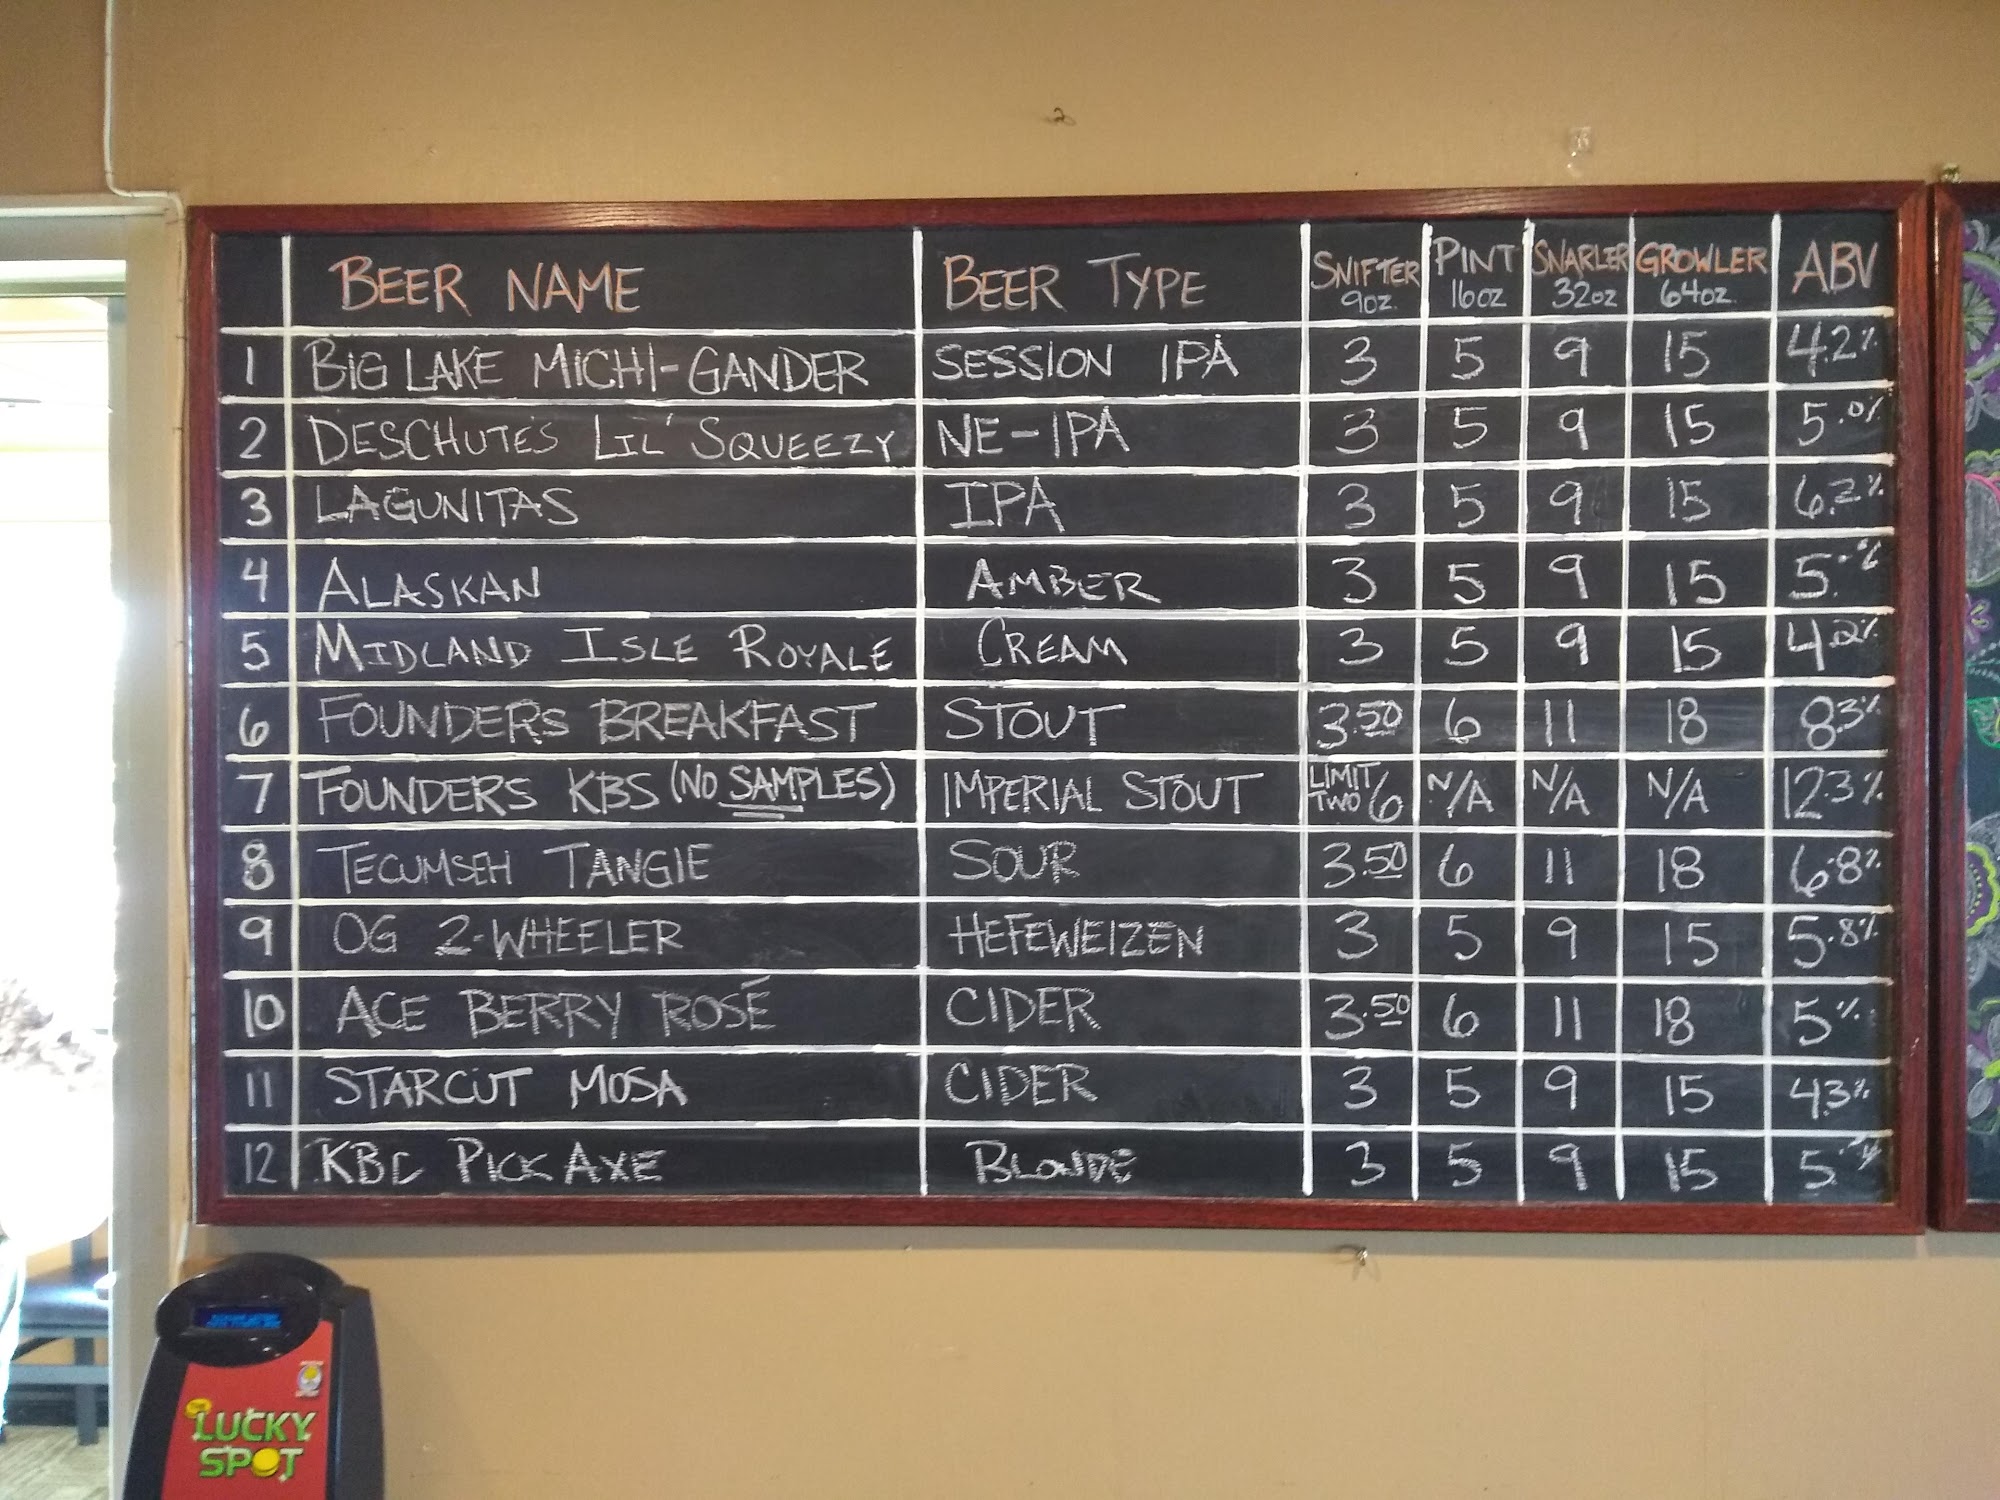 BEER NAME BEER TYPE SNIFTER 9oz. PINT 16oz SNARLER 32oz GROWLER 64oz. ABV
1 BIG LAKE MICHI-GANDER SESSION IPA 3 5 9 15 4.2%
2 DESCHUTES LIL' SQUEEZY NE-IPA 3 5 9 15 5.0%
3 LAGUNITAS IPA 3 5 9 15 6.2%
4 ALASKAN AMBER 3 5 9 15 5.%
5 MIDLAND ISLE ROYALE CREAM 3 5 9 15 4.2%
6 FOUNDERS BREAKFAST STOUT 3.50 6 11 18 8.3%
7 FOUNDERS KBS (NO SAMPLES) IMPERIAL STOUT LIMIT TWO 6 N/A N/A N/A 12.3%
8 TECUMSEH TANGIE SOUR 3.50 6 11 18 6.8%
9 OG 2-WHEELER HEFEWEIZEN 3 5 9 15 5.8%
10 ACE BERRY ROSÉ CIDER 3.50 6 11 18 5%
11 STARCUT MOSA CIDER 3 5 9 15 4.3%
12 KBC PICK AXE BLONDE 3 5 9 15 5.
THE
LUCKY
SPOT